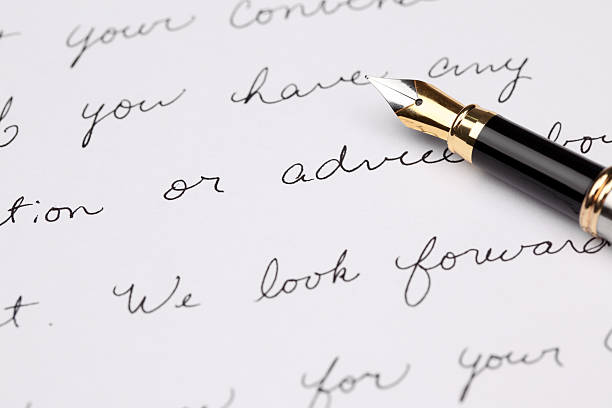 your conven
you have any
tion or advice
t. We look forward
for your